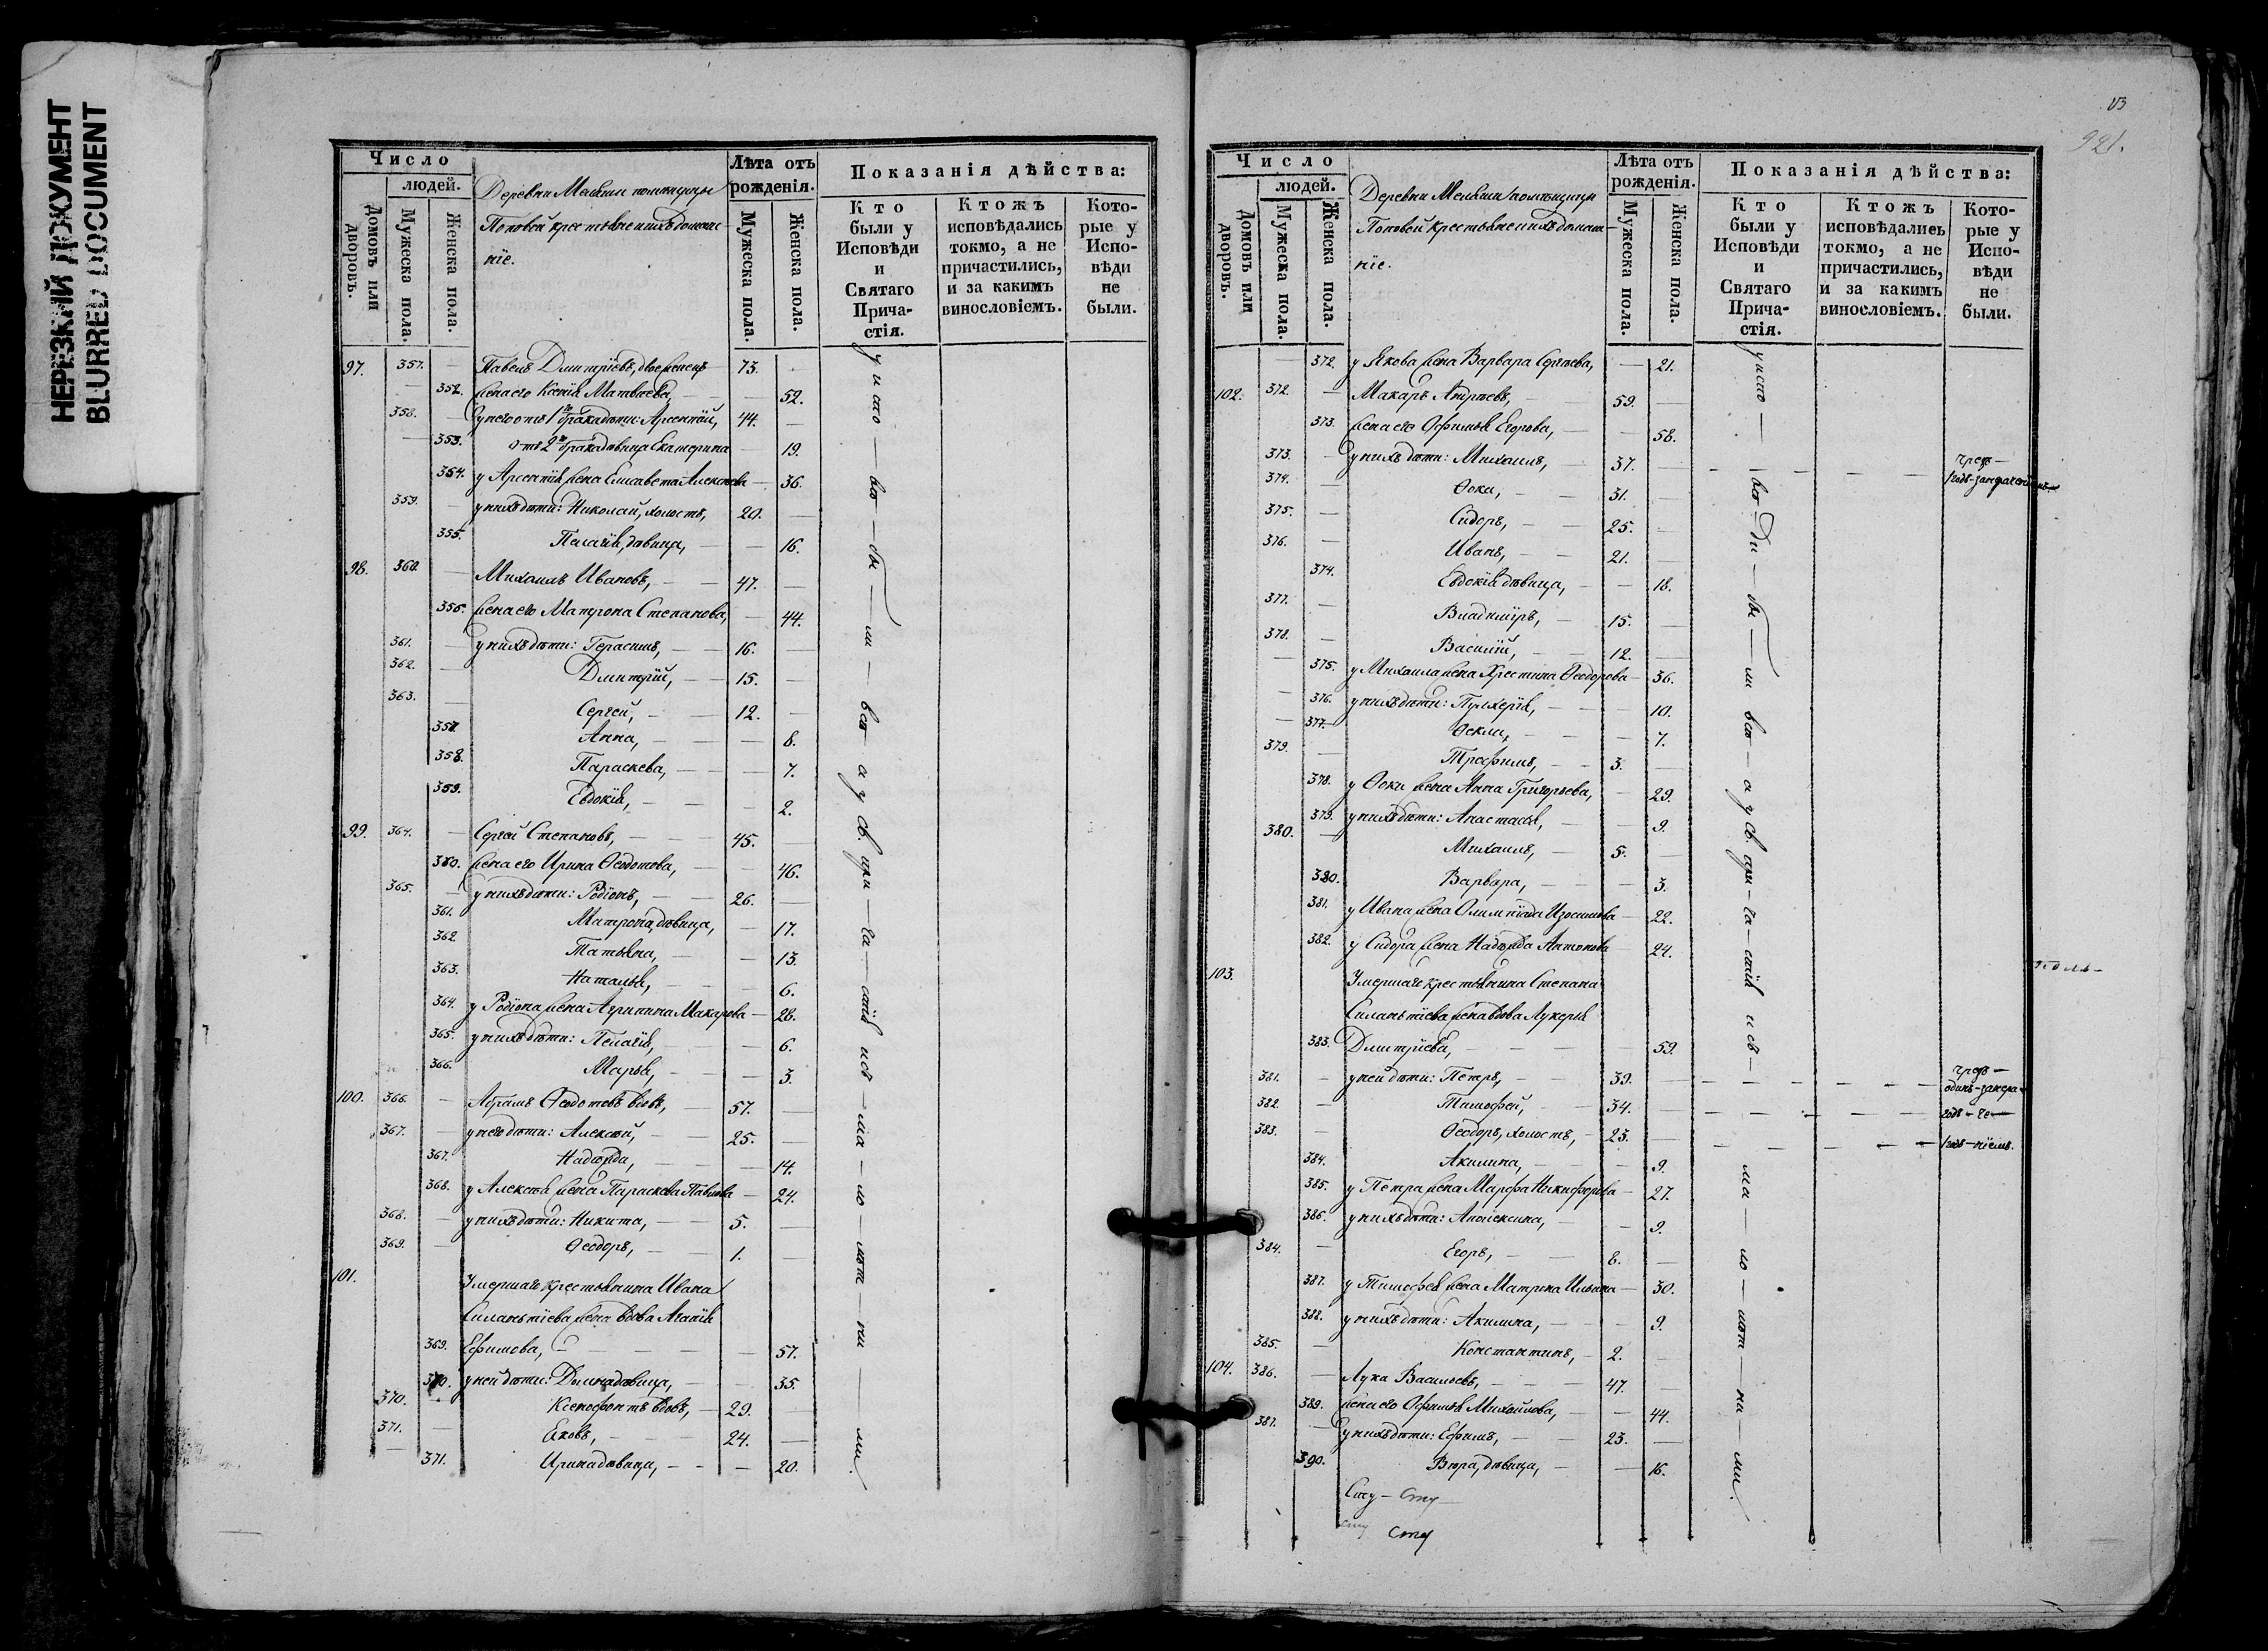 НЕРЕЗКИЙ ДОКУМЕНТ
BLURRED DOCUMENT
Число
людей.
Домовъ или дворовъ.
Мужеска пола.
Женска пола.
Деревни помѣщицы
Поповой крестьяне и ихъ домаш
ніе.
Лѣта отъ рожденія.
Мужеска пола.
Женска пола.
Показанія дѣйства:
Кто были у Исповѣди и Святаго Причастія.
Ктожъ исповѣдались токмо, а не причастились, и за какимъ винословіемъ.
Которые у Исповѣди не были.
97. 357. — Павелъ Дмитріевъ, двоеженецъ 73.
— 352. жена его Ксенія Матвѣева, — 52.
358. — у него отъ 1го брака дѣти: Арсентій, 44. —
— 353. отъ 2го брака дѣвица Екатерина — 19.
354. у Арсентія жена Елисавета Алексѣева — 36.
359. — у нихъ дѣти: Николай, холостъ, 20. —
355. Пелагія, дѣвица, — — 16.
98. 360. — Михаилъ Ивановъ, — — 47. —
356. жена его Матрона Степанова, — 44.
361. — у нихъ дѣти: Герасимъ, — — 16. —
362. — Дмитрій, — 15. —
363. — Сергей, — — 12. —
357. Анна, — — — 8.
358. Параскева, — — — 7.
359. Евдокія, — — — 2.
99. 364. — Сергей Степановъ, — — 45. —
360. жена его Ирина Ѳеодотова, — — 46.
365. — у нихъ дѣти: Родіонъ, — — 26. —
361. Матрона, дѣвица, — 17.
362. Татьяна, — — 13.
363. Наталья, — — — 6.
364. у Родіона жена Агрипина Макарова — 28.
365. у нихъ дѣти: Пелагія, — — 6.
366. Марья, — — — 3.
100. 366. — Абрамъ Ѳеодотовъ вдовъ, — 57. —
367. — у него дѣти: Алексѣй, — — 25. —
367. Надежда, — — — 14.
368. у Алексѣя жена Параскева Павлова — 24.
368. — у нихъ дѣти: Никита, — — 5. —
369. — Ѳеодоръ, — — 1. —
101. Умершаго крестьянина Ивана
Силантіева жена вдова Агапія
369. Ефимова, — — — — 57.
370. у ней дѣти: Домна дѣвица, — — 35.
370. — Ксенофонтъ вдовъ, — 29. —
371. — Яковъ, — — — 24. —
371. Ирина дѣвица, — — — 20.
у испо — вѣ — ды — ли — всѣ — а у св. при — ча — стія исъ — ма — ло — лѣт — ни — ми.
921.
Число
людей.
Домовъ или дворовъ.
Мужеска пола.
Женска пола.
Деревни помѣщицы
Поповой крестьяне и ихъ домаш
ніе.
Лѣта отъ рожденія.
Мужеска пола.
Женска пола.
Показанія дѣйства:
Кто были у Исповѣди и Святаго Причастія.
Ктожъ исповѣдались токмо, а не причастились, и за какимъ винословіемъ.
Которые у Исповѣди не были.
— 372. у Якова жена Варвара Сергѣева, — 21.
102. 372. — Макаръ Андреевъ, — 59. —
373. жена его Офимья Егорова, — — 58.
373. — у нихъ дѣти: Михаилъ, — 37. —
374. — Ѳока, — — 31. —
375. — Сидоръ, — — 25. —
376. — Иванъ, — — 21. —
374. Евдокія дѣвица, — — 18.
377. — Владиміръ, — 15. —
378. — Василій, — 12. —
375. у Михаила жена Христина Ѳеодорова — 36.
376. у нихъ дѣти: Пулхерія, — — 10.
377. Ѳекла, — — — 7.
379. — Трофимъ, — — 3. —
378. у Ѳоки жена Анна Григорьева, — 29.
379. у нихъ дѣти: Анастасья, — — 9.
380. — Михаилъ, — 5. —
380. Варвара, — — — 3.
381. у Ивана жена Олимпіада Изосимова — 22.
382. у Сидора жена Надежда Антонова — 24.
103. Умершаго крестьянина Степана
Силантіева жена вдова Лукерія
383. Дмитріева, — — — — 59.
381. — у ней дѣти: Петръ, — — 39. —
382. — Тимофей, — — 34. —
383. — Ѳеодоръ, холостъ, — 23. —
384. Акилина, — — — 9.
385. у Петра жена Марфа Никифорова — 27.
386. у нихъ дѣти: — — 9.
384. — Егоръ, — — 8. —
387. у Тимофея жена Матрена Ильина — 30.
388. у нихъ дѣти: Акилина, — — 9.
385. — Константинъ, — 2. —
104. 386. — Лука Васильевъ, — — 47. —
389. жена его Офимья Михайлова, — — 44.
387. — у нихъ дѣти: Ефимъ, — 23. —
390. Вѣра, дѣвица, — — 16.
у испо — вѣ — ды — ли всѣ — а у св. при — ча — стія исъ — ма — ло — лѣт — ни — ми.